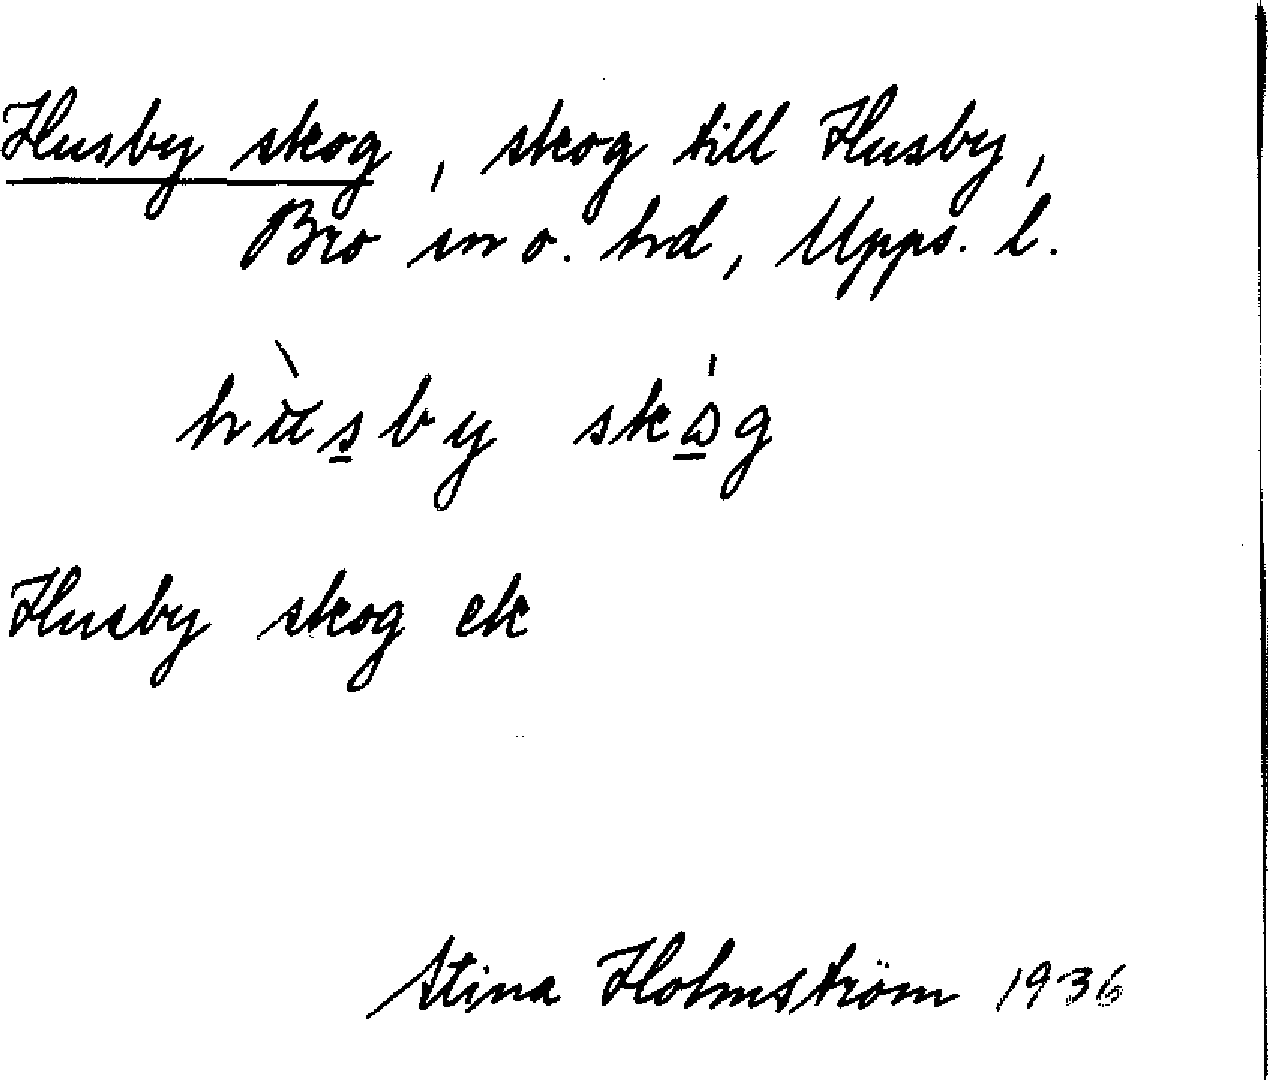 Husby skog, skog till Husby,
Bro sn o. hd, Upps. l.
hùsby skǻg
Husby skog ek
Stina Holmström 1936